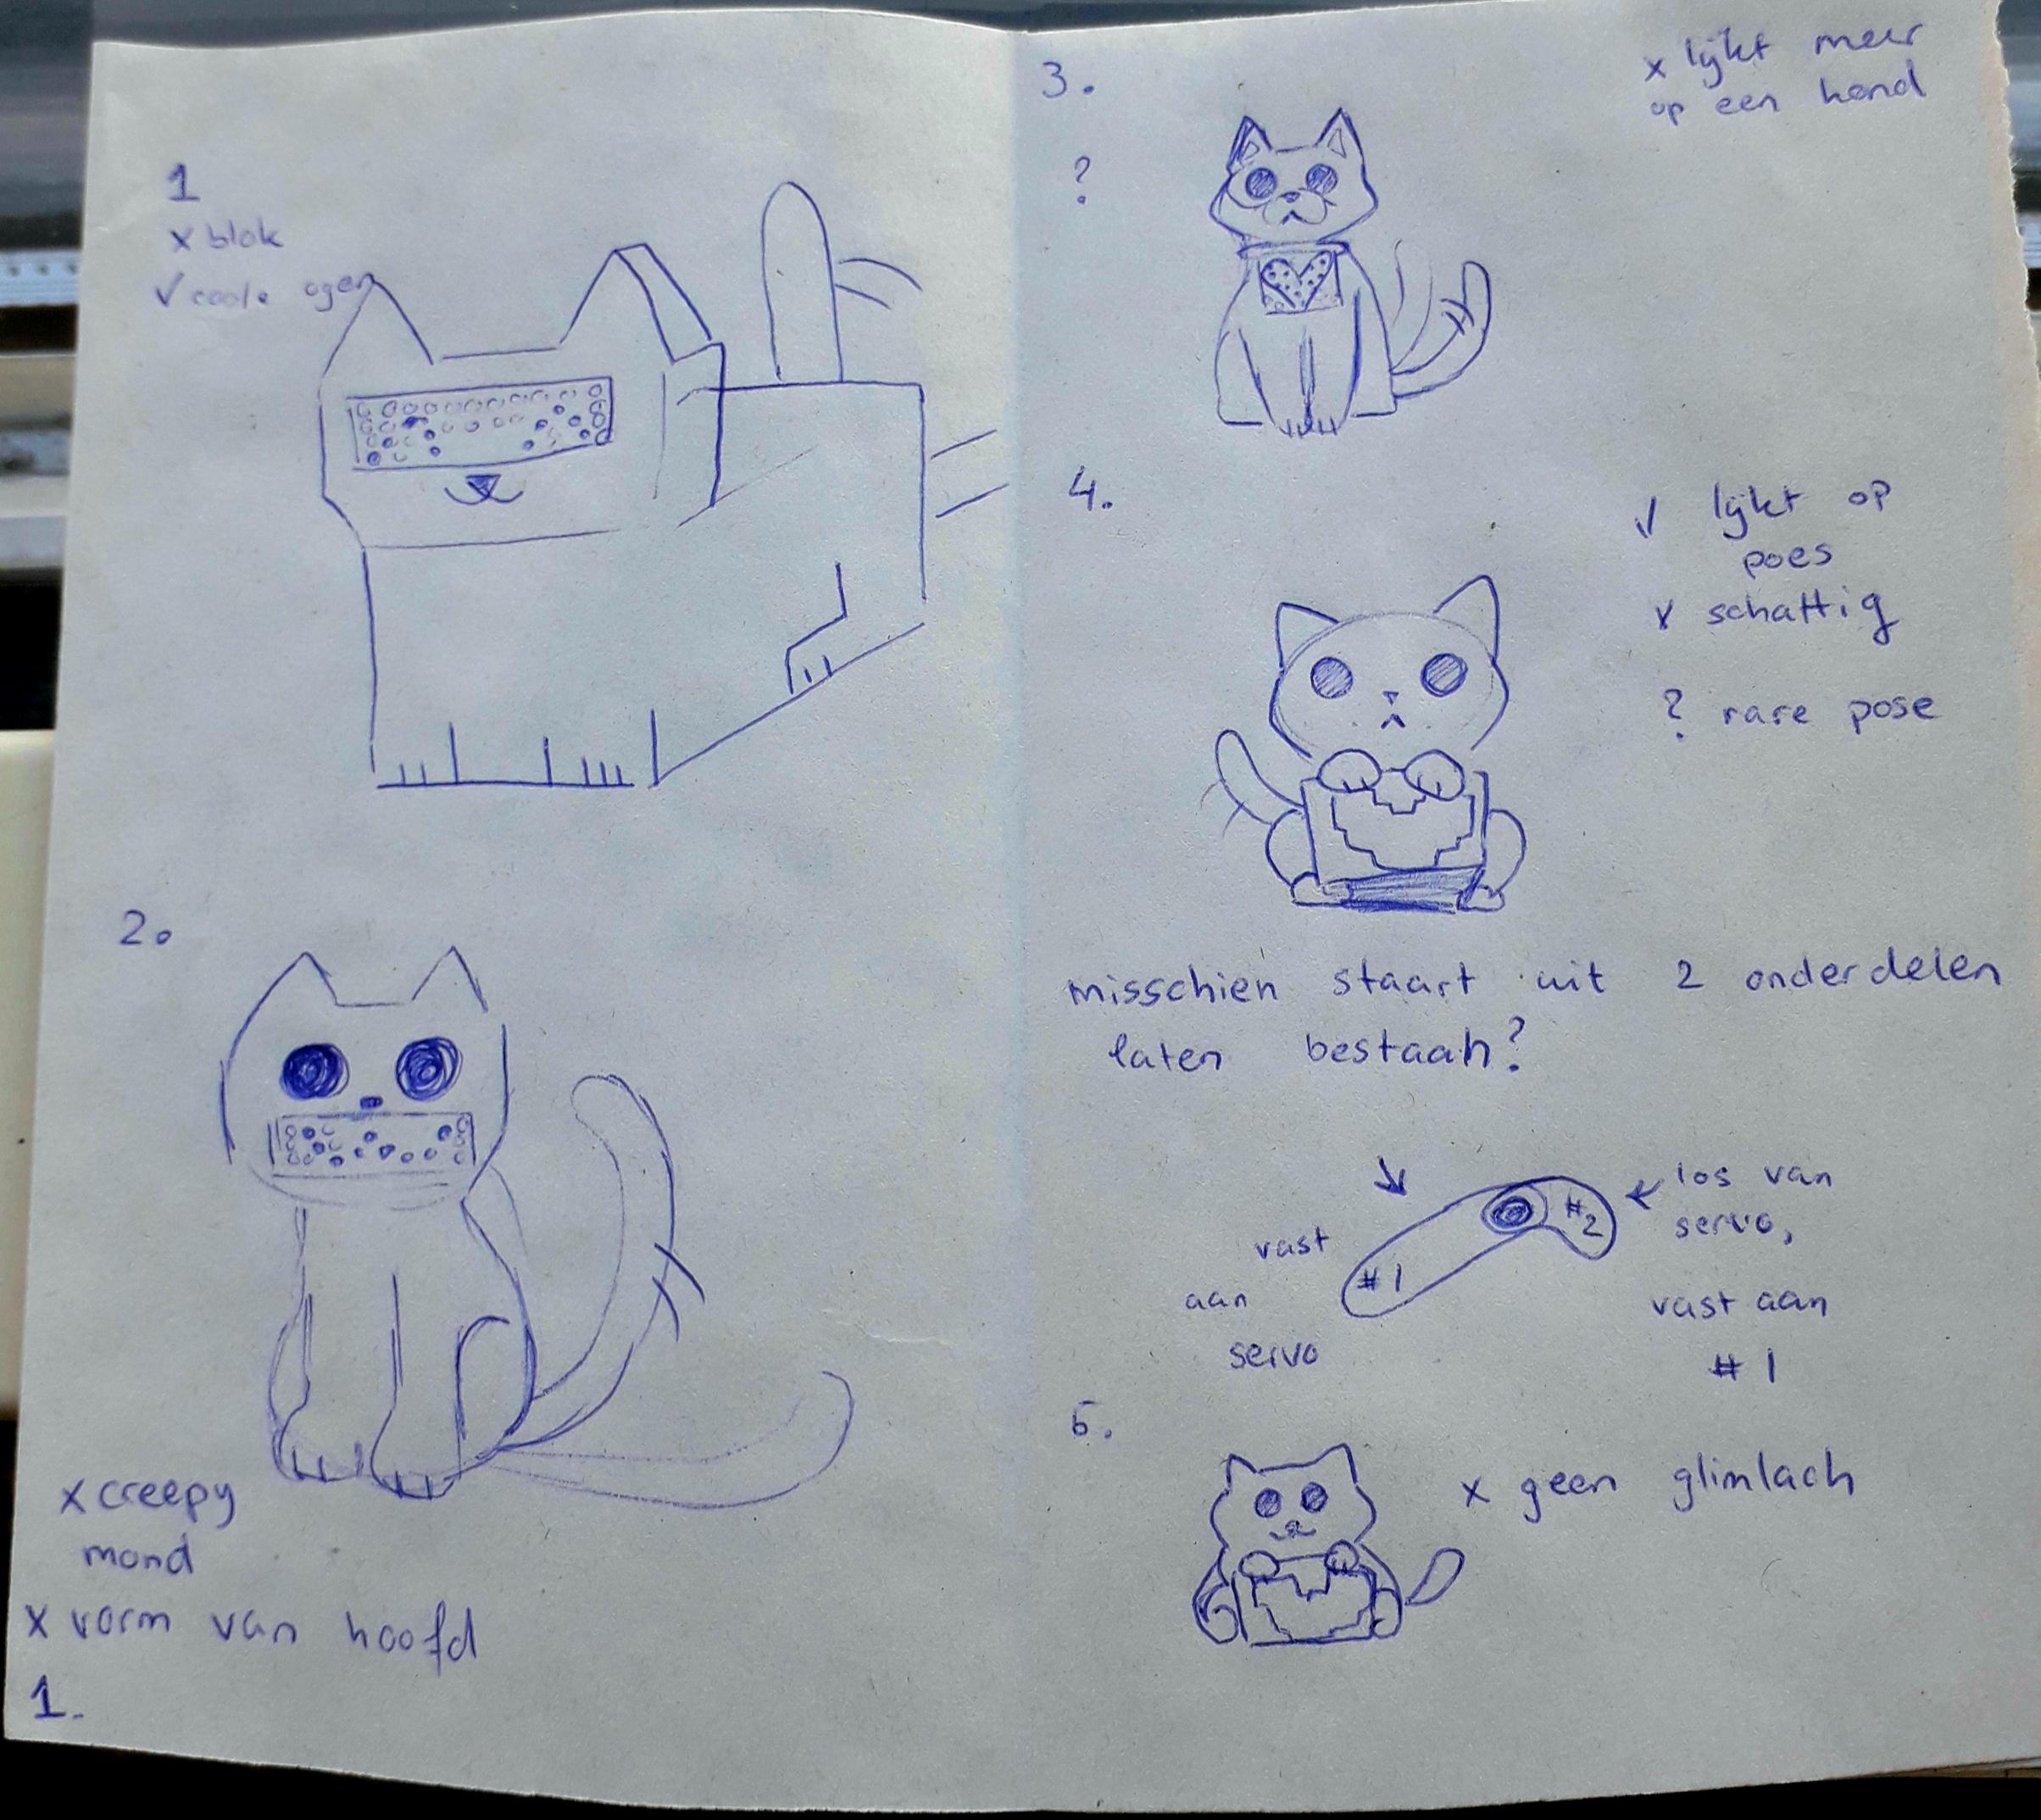 1
x blok
√ coole ogen
2.
x creepy
mond
x vorm van hoofd
1.
3.
?
x lijkt meer
op een hond
4.
√ lijkt op
poes
√ schattig
? rare pose
misschien staart uit 2 onderdelen
laten bestaan?
vast
aan
servo
#1
#2
los van
servo,
vast aan
#1
5.
x geen glimlach